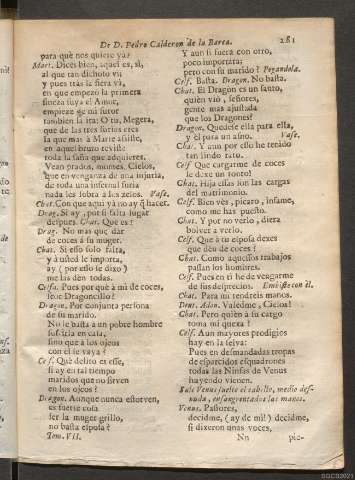 De D. Pedro Calderon de la Barca. 281
para què nos quiere ya?
Mart. Dices bien, aquel es, si,
al que tan dichoto vi;
y pues tràs la fiera và,
en que empezò la primera
fineza suya el Amor,
empieze de mi furor
tambien la ira: O tu, Megera,
que de las tres furias eres
la que mas à Marte assiste,
en aquel bruto reviste
toda la saña que adquieres,
Vean prados, montes, Cielos,
que en venganza de una injuria,
de toda una infernal furia
nada les sobra à dos zelos. Vase.
Chat. Con que aqui yà no ay q̃ hacer.
Drag. Si ay, por si falta lugar
despues. Chat. Què es?
Drag. No mas que dar
de coces à su muger.
Chat. Si esso solo falta,
y à usted le importa,
ay (por esso se dixo)
me las den todas.
Celfa. Pues por què à mi de coces,
seor Dragoncillo?
Dragon. Por conjunta persona
de su marido.
No le basta à un pobre hombre
sufrirla en casa,
sino que à los ojos
con el se vaya?
Celf. Què delito es esse,
si ay en tal tiempo
maridos que no sirven
en los ojos?
Dragon. Aunque nunca estorven,
es fuerte cosa
ser la muger grillo,
no basta esposa?
Tom. VII.
Y aun si fuera con otro,
poco importara;
pero con su marido? Pegandola.
Celf. Basta. Dragon. No basta.
Chat. El Dragon es un santo,
quièn viò, señores,
gente mas ajustada
que los Dragones?
Dragon. Quedese ella para ella,
y èl para un asno. Vase.
Chat. Y aun por esso he tenido
tan lindo rato.
Celf. Que cargarme de coces
le dexe un tonto!
Chat. Hija essas son las cargas
del matrimonio.
Celf. Bien vès, picaro, infame,
como me has puesto.
Chat. Y por no verlo, diera
bolver à verlo.
Celf. Que à tu esposa dexes
que dèn de coces?
Chat. Como aquessos trabajos
passan los hombres.
Celf. Pues en ti he de vengarme
de sus desprecios. Embiste con èl.
Chat. Para mi tendreis manos.
Dent. Adon. Valedme, Cielos!
Chat. Pero quièn à su cargo
toma mi quexa?
Celf. Aun mayores prodigios
hay en la selva:
Pues en desmandadas tropas
de esparcidos esquadrones
todas las Ninfas de Venus
huyendo vienen.
Sale Venus suelto el cabello, medio des-
nuda, ensangrentadas las manos.
Venus. Pastores,
decidme, (ay de mi!) decidme,
si dixeron unas voces,
Nn pie-